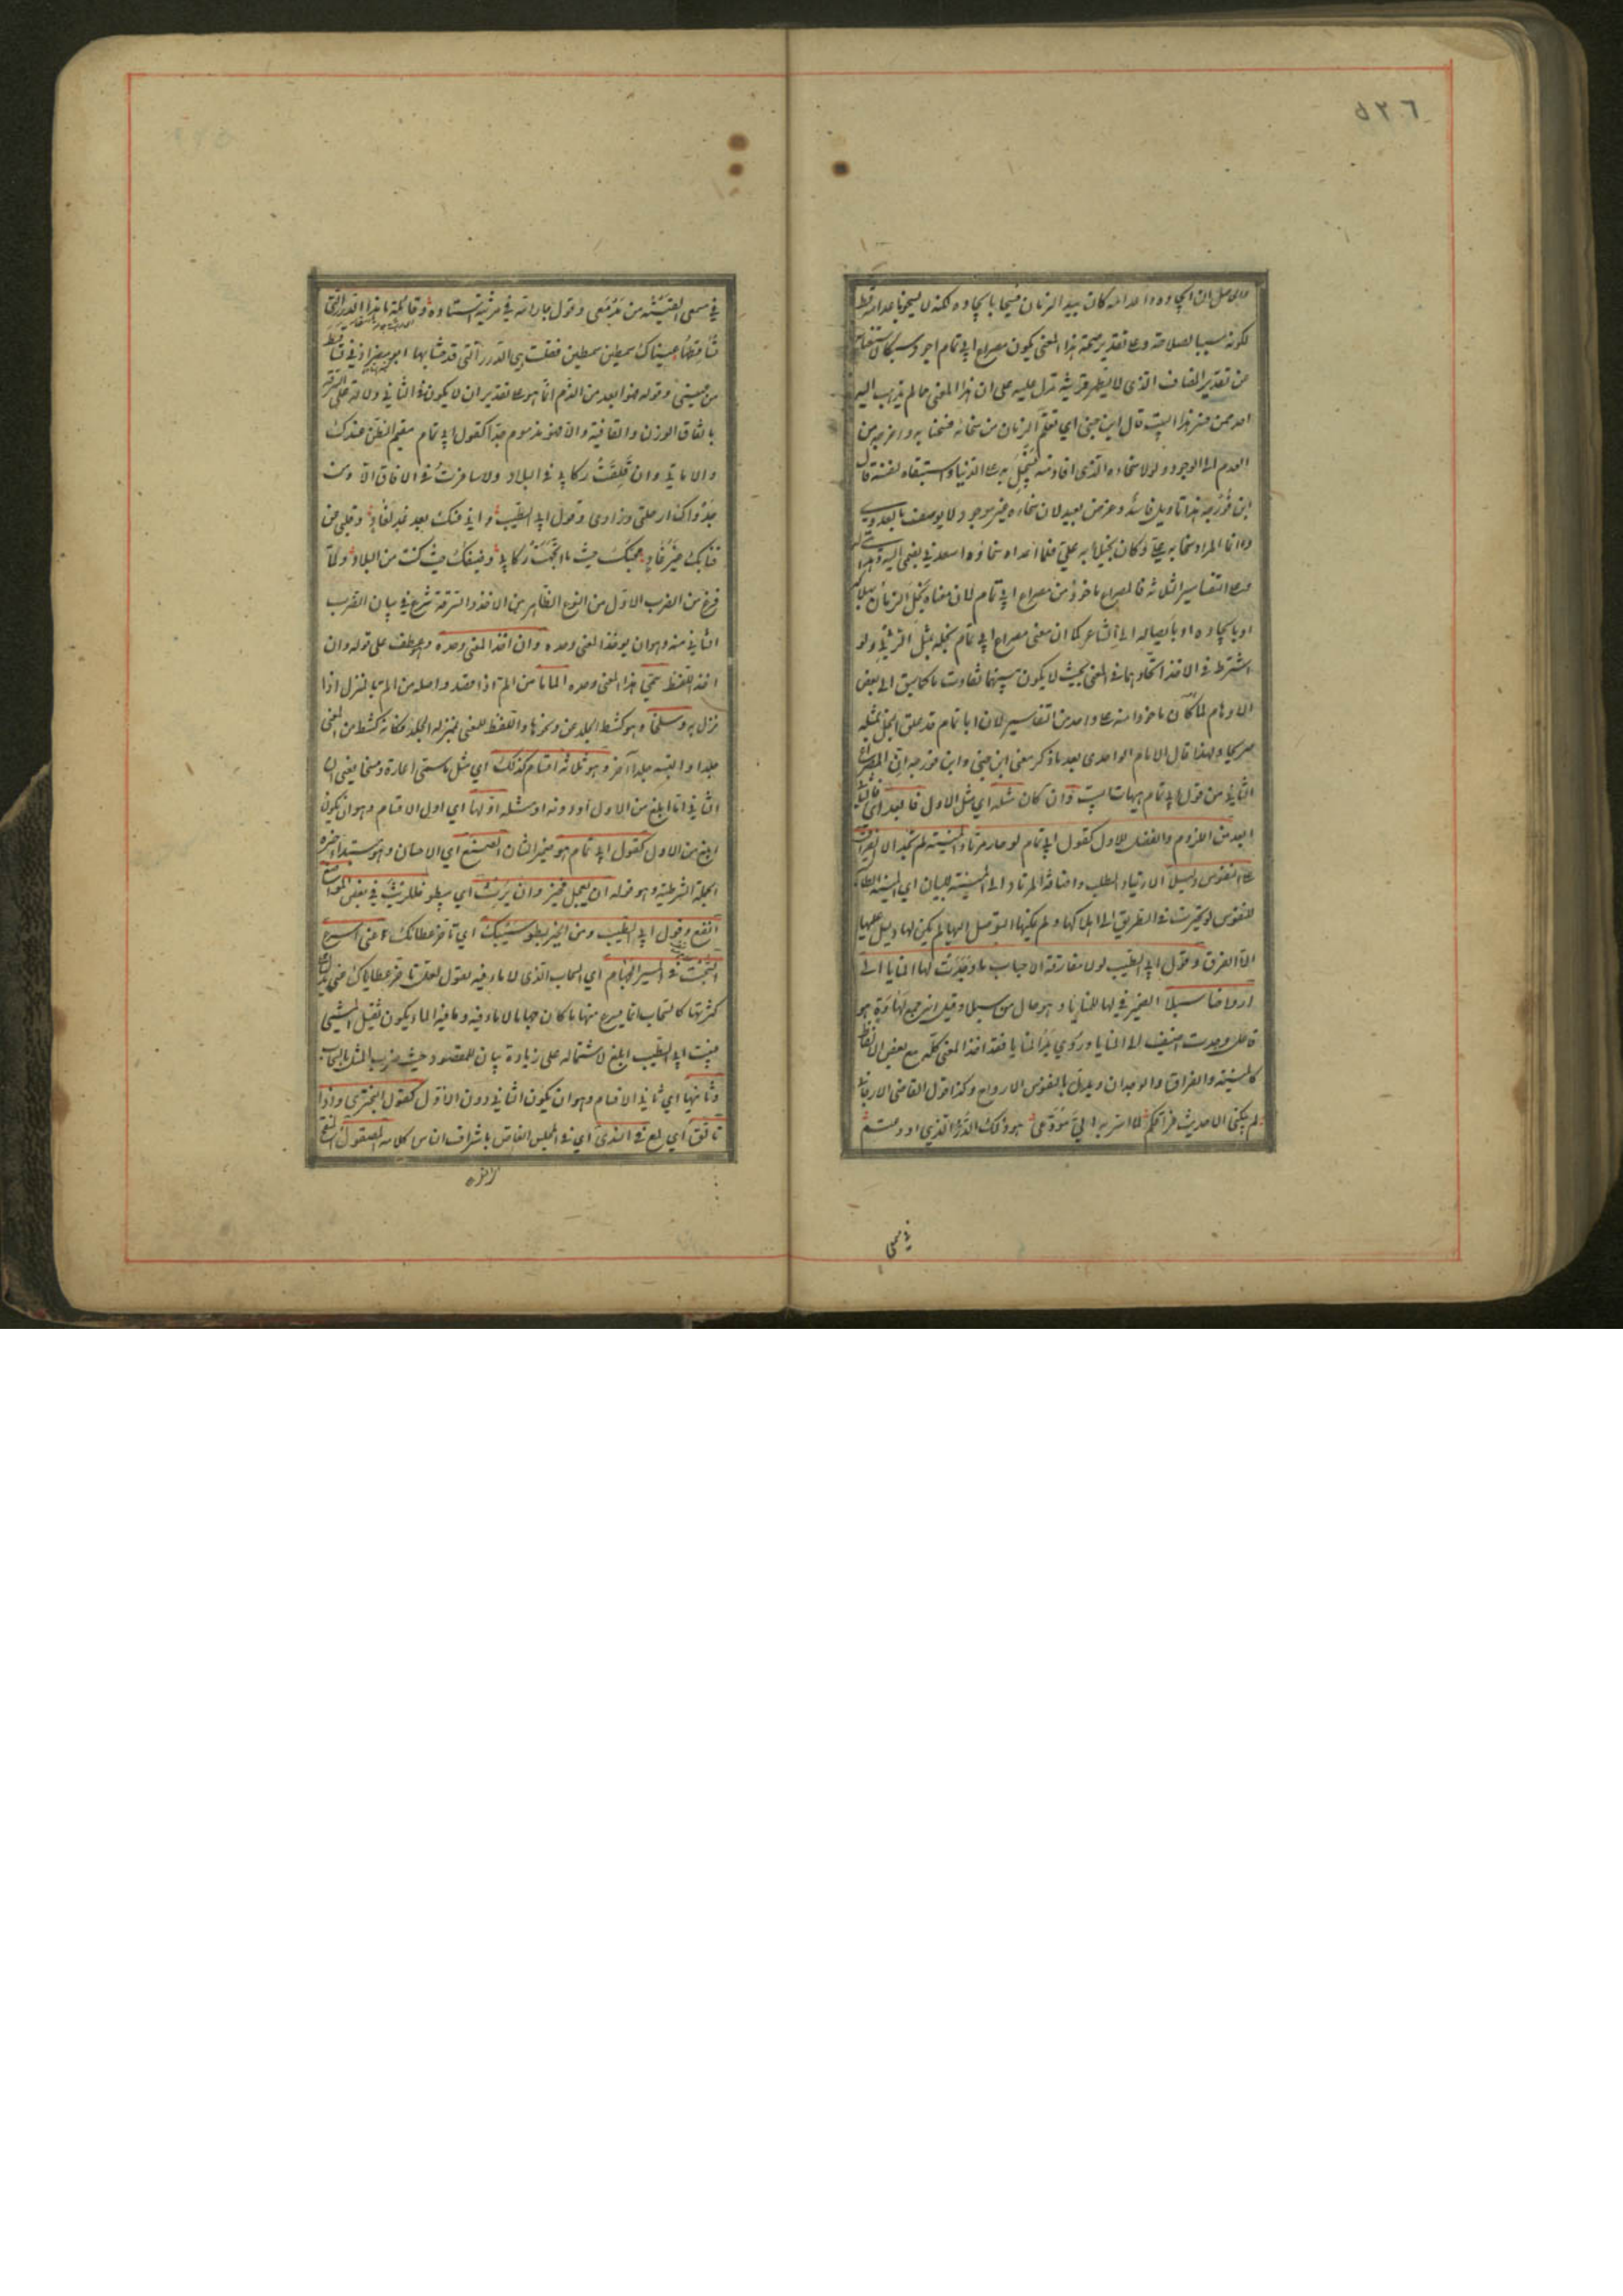 ٥٢٦
لكونه سببا لصلاحه وعلى تقدير صحة هذا المعنى يكون مصراع ابي تمام اجود سبكا
من تقدير المضاف الذي لا يظهر قرينة تدل عليه على ان هذا المعنى مما لم يذهب اليه
احد ممن فسر هذا البيت قال ابن جني اي تعلم الزمان من سخائه فسخا به واخرجه من
العدم الى الوجود ولولا سخاءه الذي افاد منه لبخل به على الدنيا واستبقاه لنفسه قال
ابن فورجه هذا تاويل فاسد وغرض بعيد لان سخاء غير موجود لا يوصف بالعدوى
وانما المراد سخا به علي وكان بخيلا به علي فلما اعداه سخاؤه اسعدني بضمي اليه
وعلى التفاسير الثلاثة فالمصراع ماخوذ من مصراع ابي تمام لان معناه بخل الزمان
او بايجاده او بايصاله الى الشاعر كما ان معنى مصراع ابي تمام بخله بمثل المرثي ولو
اشترط في الاخذ اتحادهما في المعنى بحيث لا يكون بينهما تفاوت ما كما سبق الى بعض
الاوهام لما كان ماخوذا منه على واحد من التفاسير لان ابا تمام قد علق البخل بمثله
صريحا ولهذا قال الامام الواحدي بعد ما ذكر معنى ابن جني وابن فورجه ان المصراع
الثاني من قول ابي تمام هيهات البيت وان كان مثله اي مثل الاول فابعد اي فالثاني
ابعد من الذم والفضل للاول كقول ابي تمام لو حار مرتاد المنية لم تجد الا الفراق
على النفوس دليلا الارتياد الطلب واضافة المرتاد الى المنية للبيان اي المنية الطالبة
للنفوس لو تحيرت في الطريق الى اهلاكها ولم يمكنها التوصل اليها لم يكن لها دليل عليها
الا الفراق وقول ابي الطيب لولا مفارقة الاحباب ما وجدت لها المنايا الى
ارواحنا سبلا الضمير في لها للمنايا وهو حال من سبلا وقيل انه جمع لهاة وهو
فاعل وجدت اضيف الى المنايا وروي يد المنايا فقد اخذ المعنى كله مع بعض الالفاظ
كالمنية والفراق والوجدان وبدل بالنفوس الارواح وكذا قول القاضي الارجاني
لم يبكني الا حديث فراقكم لما اسر به الي مودعي هو ذلك الدر الذي اودعتم
في مسمعي
في مسمعي القيته من مدمعي وقول جار الله في مرثية استاذه وقائلة ما هذه الدرر التي
تساقطها عيناك سمطين سمطين فقلت هي الدرر التي قد حشا بها ابو مضر اذني تساقط
من عيني وقوله فهو ابعد من الذم انما هو على تقدير ان لا يكون في الثاني دلالة على السرقة
باتفاق الوزن والقافية والا فهو مذموم جدا كقول ابي تمام مقيم الظن عندك
والاماني وان قلقت ركابي في البلاد ولا سافرت في الافاق الا ومن
جدواك راحلتي وزادي وقول ابي الطيب واني عنك بعد غد لغاد وقلبي عن
فنائك غير غاد محبك حيث ما اتجهت ركابي وضيفك حيث كنت من البلاد ولما
فرغ من الضرب الاول من النوع الظاهر من الاخذ والسرقة شرع في بيان الضرب
الثاني منه وهو ان يوخذ المعنى وحده وان اخذ المعنى وحده وهو عطف على قوله وان
اخذ اللفظ سمي هذا المعنى وحده الماما من الم اذا قصد واصله من الم بالمنزل اذا
نزل به وسلخا وهو كشط الجلد عن نحوها واللفظ للمعنى بمنزلة الجلد فكانه كشط من المعنى
جلدا والبسه جلدا آخر وهو ثلاثة اقسام كذلك اي مثل ما سمي اغارة ومسخا يعني ان
الثاني اما ابلغ من الاول او دونه او مثله اولها اي اول الاقسام وهو ان يكون
ابلغ من الاول كقول ابي تمام هو ضمير الشان الصنع اي الاحسان وهو مبتدأ خبره
الجملة الشرطية وهو قوله ان يعجل فخير وان يرث اي يبطؤ فللريث في بعض المواضع
انفع وقول ابي الطيب ومن الخير بطؤ سيبك اي تاخر عطائك عني اسرع
السحب في المسير الجهام اي السحاب الذي لا ماء فيه يقول لعل تاخر عطاياك عني يدل
كثرتها كالسحاب انما يسرع منها ما كان جهاما لا ماء فيه وما فيه الماء يكون ثقيل المشي
فبيت ابي الطيب ابلغ لاشتماله على زيادة بيان للمقصود حيث ضرب المثل بالسحاب
وثانيها اي ثاني الاقسام وهو ان يكون الثاني دون الاول كقول البحتري واذا
تالق اي لمع في الندى اي في المجلس الغاص باشراف الناس كلامه المصقول المنقح